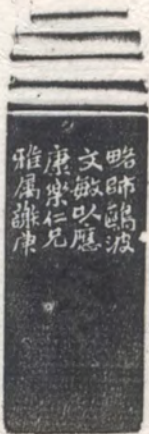 略師鷗波
文敏以應
康樂仁兄
雅屬讱庚